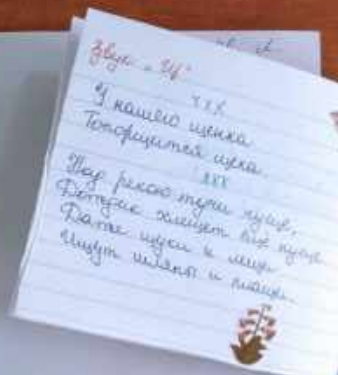 Звук „Щ"
ххх
У нашего щенка
Топорщится щека.
ххх
Над рекою тучи гуще,
Дождик хлещет пуще
Даже щуки и лещи
Ищут шляпы и плащи.